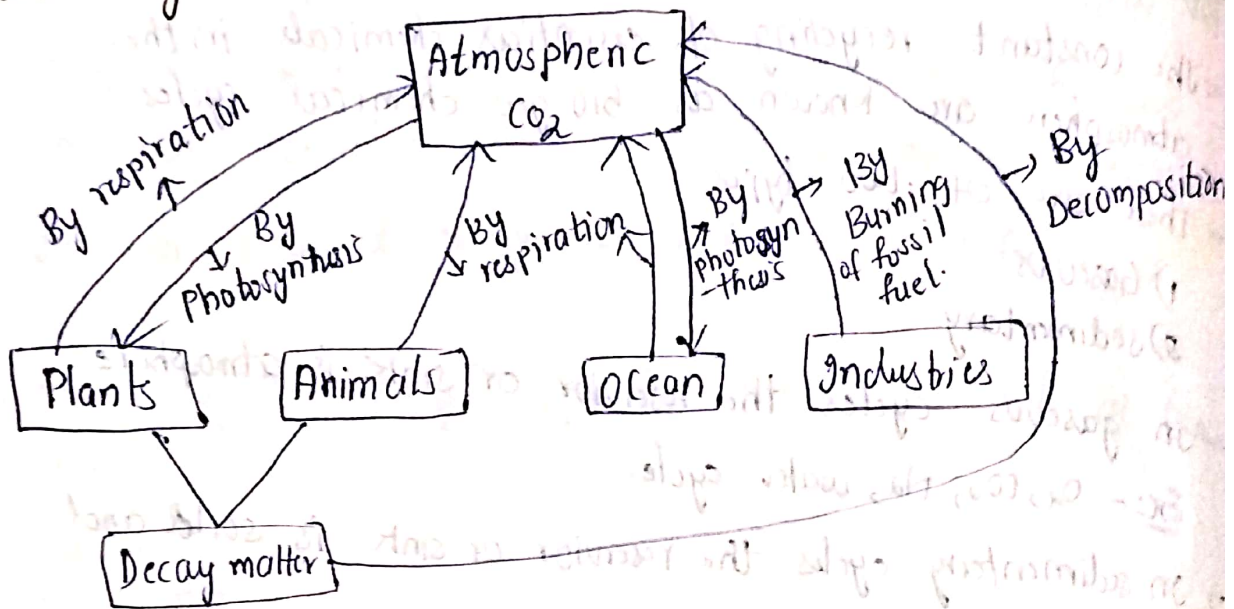 Atmospheric
CO2
By respiration
By
Photosynthesis
By
respiration
By
photosyn
-thesis
By
Burning
of fossil
fuel.
By
Decomposition
Plants
Animals
Ocean
Industries
Decay matter